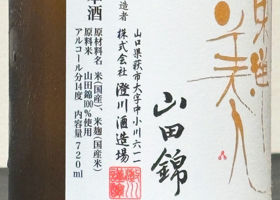 美人
山田錦
山口県萩市大字中小川六一一
造者 株式会社 澄川酒造場
酒
原材料名 米(国産)、米麹(国産米)
原料米 山田錦100%使用
アルコール分14度 内容量720ml